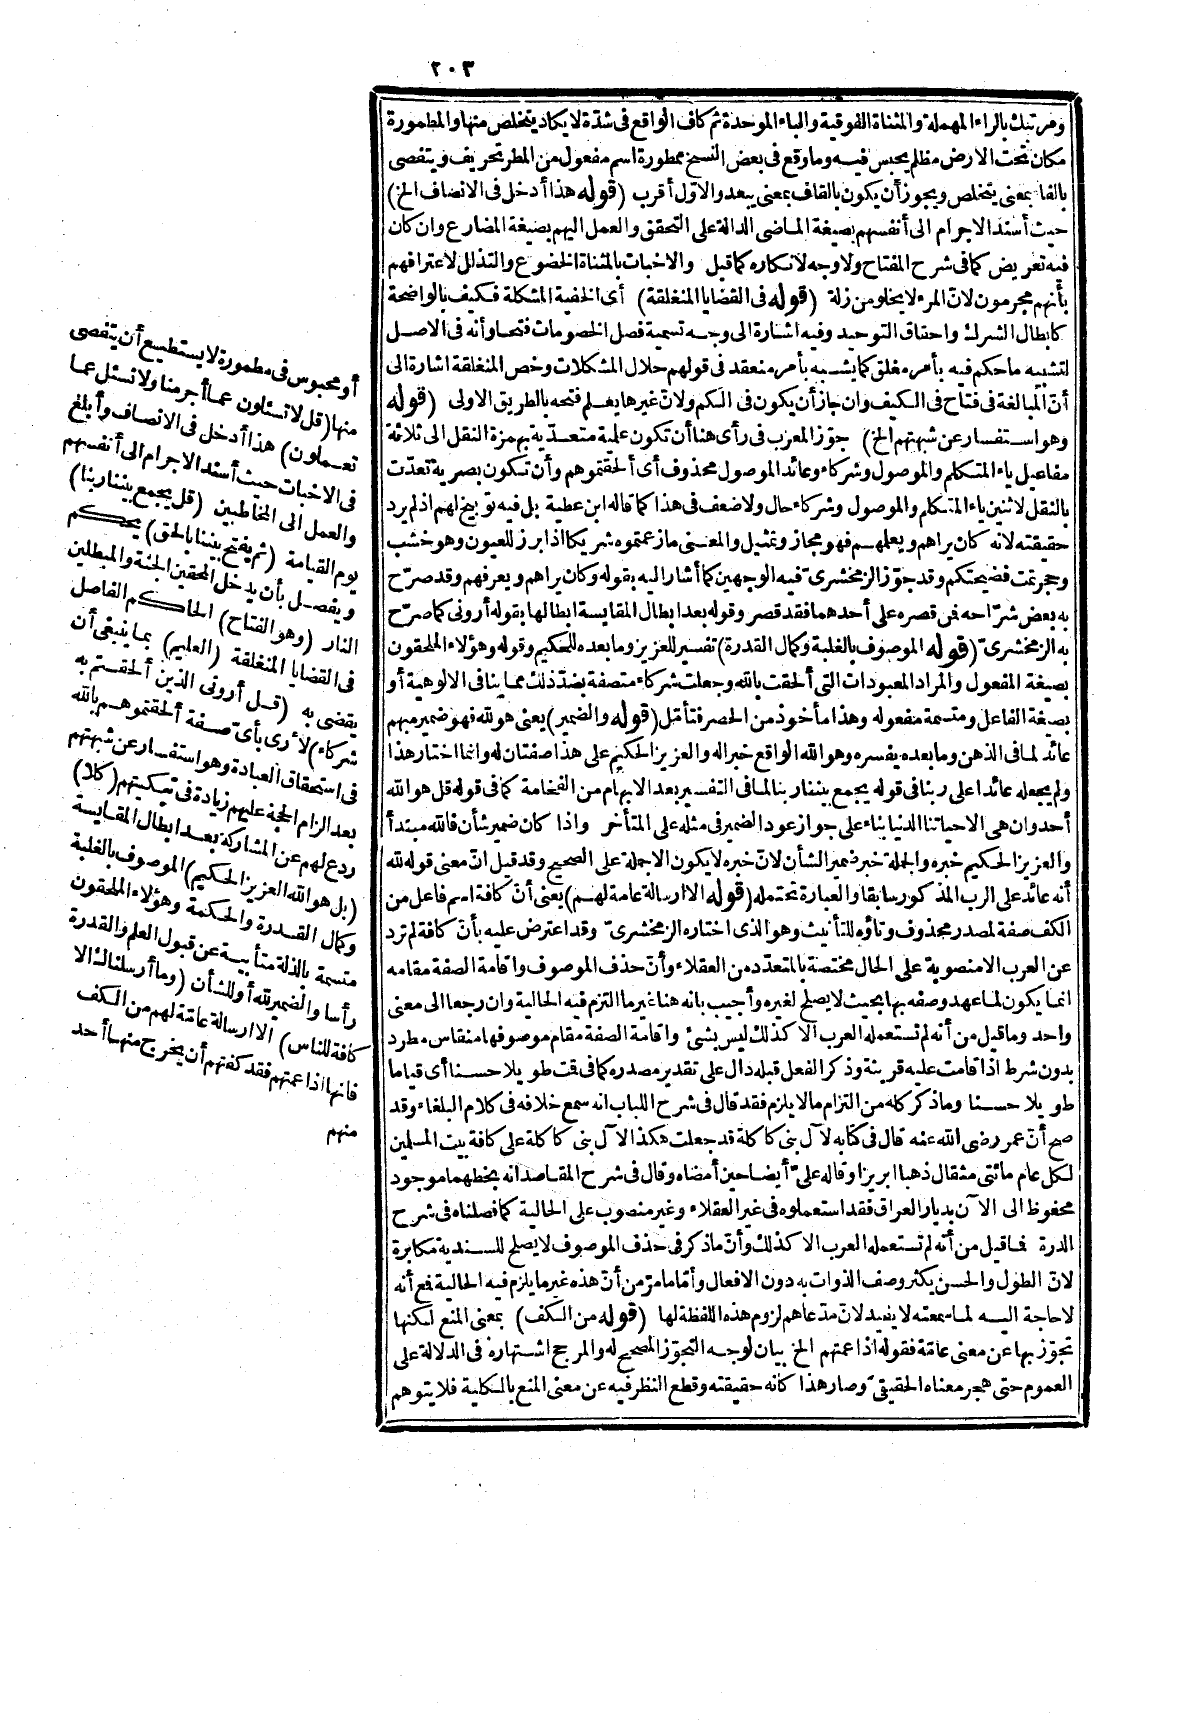 ٢٠٣
ومرتبك بالراء المهملة والمثناة الفوقية والباء الموحدة ثم كاف الواقع فى شدّة لا يكاد يتخلص منها والمطمورة
مكان تحت الارض مظلم يحبس فيه وما وقع فى بعض النسخ ممطورة اسم مفعول من المطر تحريف ويتفصى
بالفاء بمعنى يتخلص ويجوز أن يكون بالقاف بمعنى يبعد والاول أقرب (قوله هذا أدخل فى الانصاف الخ)
حيث أسند الاجرام الى أنفسهم بصيغة الماضى الدالة على التحقق والعمل اليهم بصيغة المضارع وان كان
فيه تعريض كما فى شرح المفتاح ولا وجه لانكاره كما قيل والاخبات بالمثناة الخضوع والتذلل لاعترافهم
بأنهم مجرمون لانّ المرء لا يخلو من زلة (قوله فى القضايا المنغلقة) أى الخفية المشكلة فكيف بالواضحة
كابطال الشرك واحقاق التوحيد وفيه اشارة الى وجه تسمية فصل الخصومات فتحا وأنه فى الاصل
لتشبيه ما حكم فيه بأمر مغلق كما يشبه بأمر منعقد فى قولهم حلال المشكلات وخص المنغلقة اشارة الى
أنّ المبالغة فى فتاح فى الكيف وان جاز أن يكون فى الكم ولانّ غيرها يعلم فتحه بالطريق الاولى (قوله
وهو استفسار عن شبهتهم الخ) جوّز المعرب فى رأى هنا أن تكون علمية متعدّية بهمزة النقل الى ثلاثة
مفاعيل ياء المتكلم والموصول وشركاء وعائد الموصول محذوف أى ألحقتموهم وأن تكون بصرية تعدّت
بالنقل لاثنين ياء المتكلم والموصول وشركاء حال ولا ضعف فى هذا كما قاله ابن عطية بل فيه توبيخ لهم اذ لم يرد
حقيقته لانه كان يراهم ويعلمهم فهو مجاز وتمثيل والمعنى ما زعمتموه شريكا اذا برز للعيون وهو خشب
وحجر تمت فضيحتكم وقد جوّز الزمخشرىّ فيه الوجهين كما أشار اليه بقوله وكان يراهم ويعرفهم وقد صرّح
به بعض شرّاحه فمن قصره على أحدهما فقد قصر وقوله بعد ابطال المقايسة ابطالها بقوله أرونى كما صرّح
به الزمخشرىّ (قوله الموصوف بالغلبة وكمال القدرة) تفسير للعزيز وما بعده للحكيم وقوله وهؤلاء الملحقون
بصيغة المفعول والمراد المعبودات التى ألحقت بالله وجعلت شركاء متصفة بضدّ ذلك مما ينافى الالوهية أو
بصيغة الفاعل ومتسمة مفعوله وهذا مأخوذ من الحصر فتأمّل (قوله والضمير) يعنى هو لله فهو ضمير مبهم
عائد لما فى الذهن وما بعده يفسره وهو الله الواقع خبرا له والعزيز الحكيم على هذا صفتان له وانما اختار هذا
ولم يجعله عائدا على ربنا فى قوله يجمع بيننا ربنا لما فى التفسير بعد الابهام من الفخامة كما فى قوله قل هو الله
أحد وان هى الا حياتنا الدنيا بناء على جواز عود الضمير فى مثله على المتأخر واذا كان ضمير شأن فالله مبتدأ
والعزيز الحكيم خبره والجملة خبر ضمير الشأن لانّ خبره لا يكون الا جملة على الصحيح وقد قيل انّ معنى قوله لله
أنه عائد على الرب المذكور سابقا والعبارة تحتمله (قوله الا ارسالة عامة لهم) يعنى أنّ كافة اسم فاعل من
الكف صفة لمصدر محذوف وتاؤه للتأنيث وهو الذى اختاره الزمخشرىّ وقد اعترض عليه بأنّ كافة لم ترد
عن العرب الا منصوبة على الحال مختصة بالمتعدّد من العقلاء وأنّ حذف الموصوف واقامة الصفة مقامه
انما يكون لما عهد وصفه بها بحيث لا يصلح لغيره وأجيب بانه هنا غير ما التزم فيه الحالية وان رجعا الى معنى
واحد وما قيل من أنه لم تستعمله العرب الا كذلك ليس بشئ واقامة الصفة مقام موصوفها منقاس مطرد
بدون شرط اذا قامت عليه قرينة وذكر الفعل قبله دال على تقدير مصدره كما فى قمت طويلا حسنا أى قياما
طويلا حسنا وما ذكر كله من التزام ما لا يلزم فقد قال فى شرح اللباب انه سمع خلافه فى كلام البلغاء وقد
صح أنّ عمر رضى الله عنه قال فى كتابه لآل بنى كاكلة قد جعلت هكذا لآل بنى كاكلة على كافة بيت المسلمين
لكل عام مائتى مثقال ذهبا ابريزا وقاله علىّ أيضا حين أمضاه وقال فى شرح المقاصد انه بخطهما موجود
محفوظ الى الآن بديار العراق فقد استعملوه فى غير العقلاء وغير منصوب على الحالية كما فصلناه فى شرح
الدرة فما قيل من أنه لم تستعمله العرب الا كذلك وأنّ ما ذكر فى حذف الموصوف لا يصلح للسندية مكابرة
لانّ الطول والحسن يكثر وصف الذوات به دون الافعال وأمّا ما مرّ من أنّ هذه غير ما يلزم فيه الحالية فمع أنه
لا حاجة اليه لما سمعته لا يفيد لانّ مدّعاهم لزوم هذه اللفظة لها (قوله من الكف) بمعنى المنع لكنها
تجوّز بها عن معنى عامّة فقوله اذا عمتهم الخ بيان لوجه التجوّز المصحح له والمرجح اشتهاره فى الدلالة على
العموم حتى هجر معناه الحقيقىّ وصار هذا كانه حقيقته وقطع النظر فيه عن معنى المنع بالكلية فلا يتوهم
أو محبوس فى مطمورة لا يستطيع أن يتفصى
منها (قل لا تسئلون عما أجرمنا ولا نسئل عما
تعملون) هذا أدخل فى الانصاف وأبلغ
فى الاخبات حيث أسند الاجرام الى أنفسهم
والعمل الى المخاطبين (قل يجمع بيننا ربنا)
يوم القيامة (ثم يفتح بيننا بالحق) يحكم
ويفصل بأن يدخل المحقين الجنة والمبطلين
النار (وهو الفتاح) الحاكم الفاصل
فى القضايا المنغلقة (العليم) بما ينبغى أن
يقضى به (قل أرونى الذين ألحقتم به
شركاء) لأرى بأىّ صفة ألحقتموهم بالله
فى استحقاق العبادة وهو استفسار عن شبهتهم
بعد الزام الحجة عليهم زيادة فى تبكيتهم (كلا)
ردع لهم عن المشاركة بعد ابطال المقايسة
(بل هو الله العزيز الحكيم) الموصوف بالغلبة
وكمال القدرة والحكمة وهؤلاء الملحقون
متسمة بالذلة متأبية عن قبول العلم والقدرة
رأسا والضمير لله أو للشأن (وما أرسلناك الا
كافة للناس) الا ارسالة عامّة لهم من الكف
فانها اذا عمتهم فقد كفتهم أن يخرج منها أحد
منهم